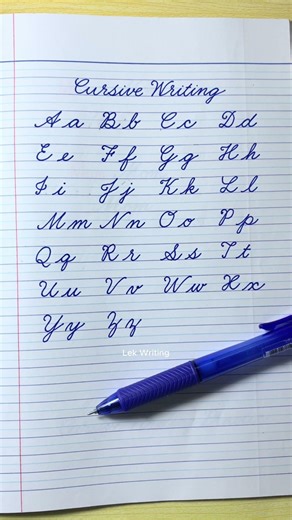 Cursive Writing
A a B b C c D d
E e F f G g H h
I i J j K k L l
M m N n O o P p
Q q R r S s T t
U u V v W w X x
Y y Z z
Lek Writing